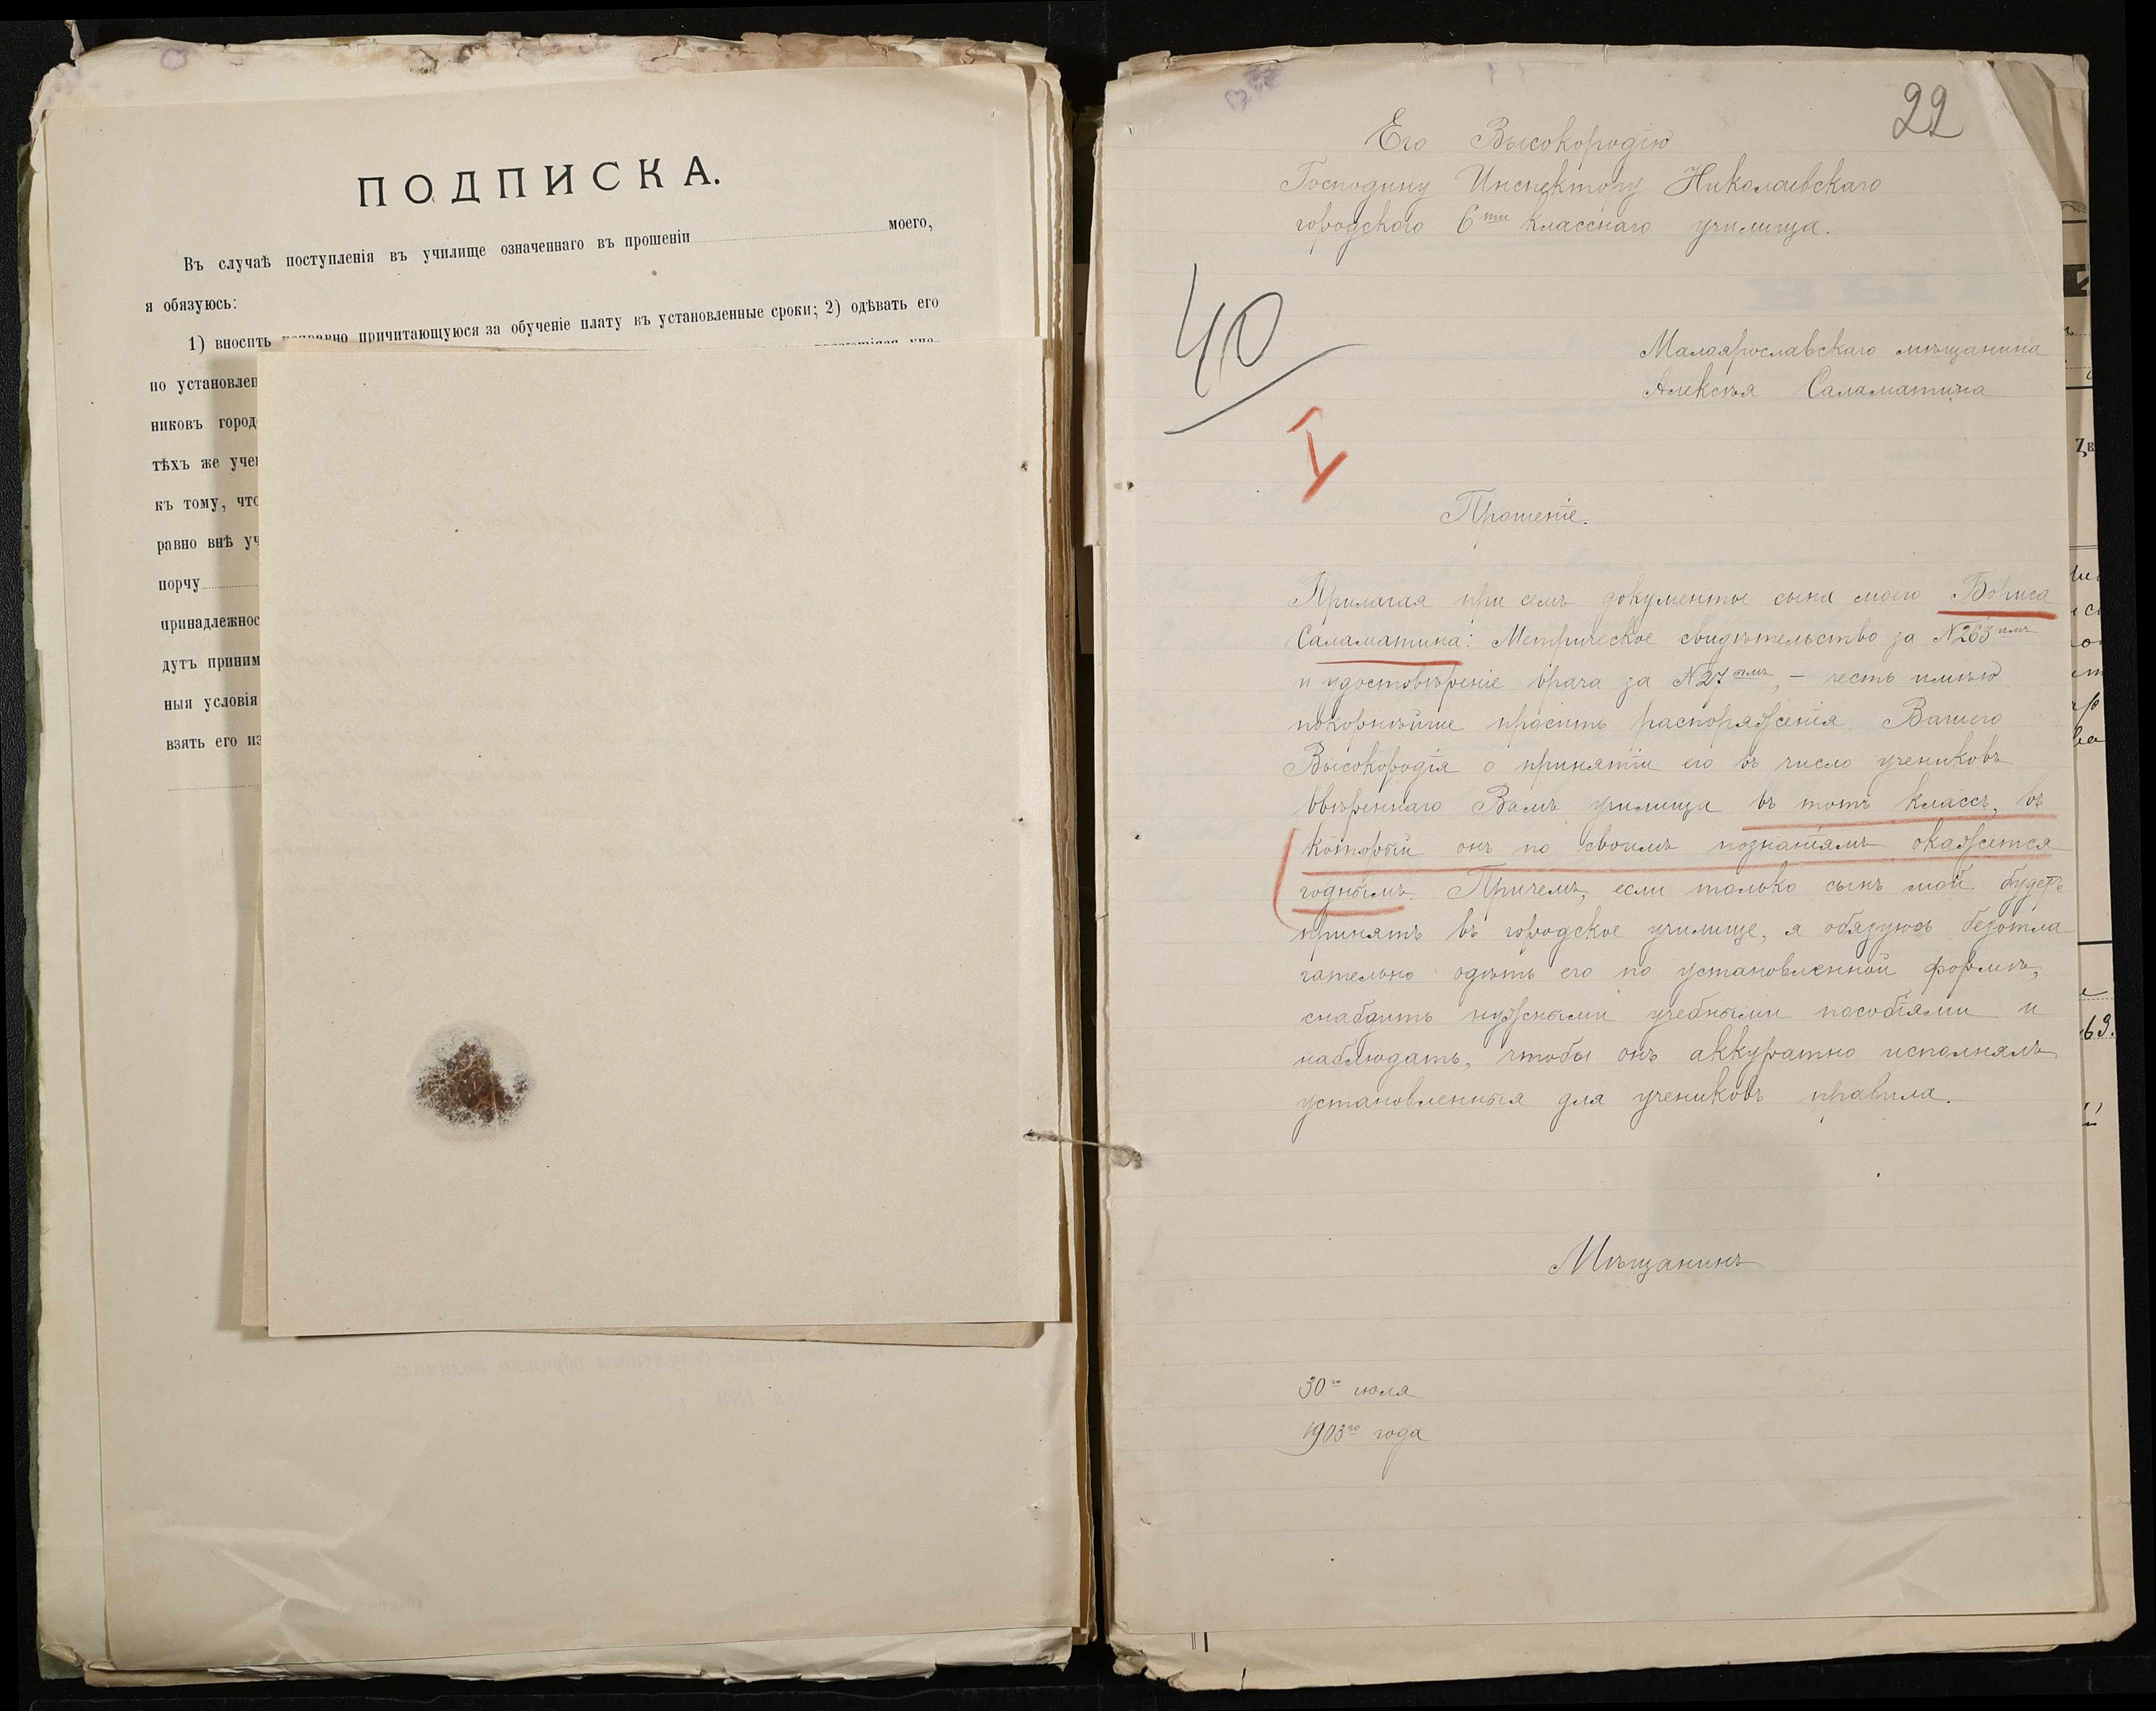 ПОДПИСКА.
Въ случаѣ поступленія въ училище означеннаго въ прошеніи моего,
я обязуюсь:
1) вносить исправно причитающуюся за обученіе плату въ установленные сроки; 2) одѣвать его
по установлен
никовъ город
тѣхъ же учен
къ тому, что
равно внѣ уч
порчу
принадлежнос
дутъ приним
ныя условія
взять его из
22
Его Высокородію
Господину Инспектору Николаевскаго
городского 6ти класснаго училища.
40
Малоярославскаго мѣщанина
Алексѣя Саламатина
I
Прошеніе.
Прилагая при семъ документы сына моего Бориса
Саламатина: Метрическое свидѣтельство за №263имъ
и удостовѣреніе врача за №27омъ, – честь имѣю
покорнѣйше просить распоряженія Вашего
Высокородія о принятіи его въ число учениковъ
ввѣреннаго Вамъ училища въ тотъ классъ, въ
который онъ по своимъ познаніямъ окажется
годнымъ. Причемъ, если только сынъ мой будетъ
принятъ въ городское училище, я обязуюсь безотла
гательно одѣть его по установленной формѣ,
снабдить нужными учебными пособіями и
наблюдать, чтобы онъ аккуратно исполнялъ
установленныя для учениковъ правила.
Мѣщанинъ
30го июля
1903го года